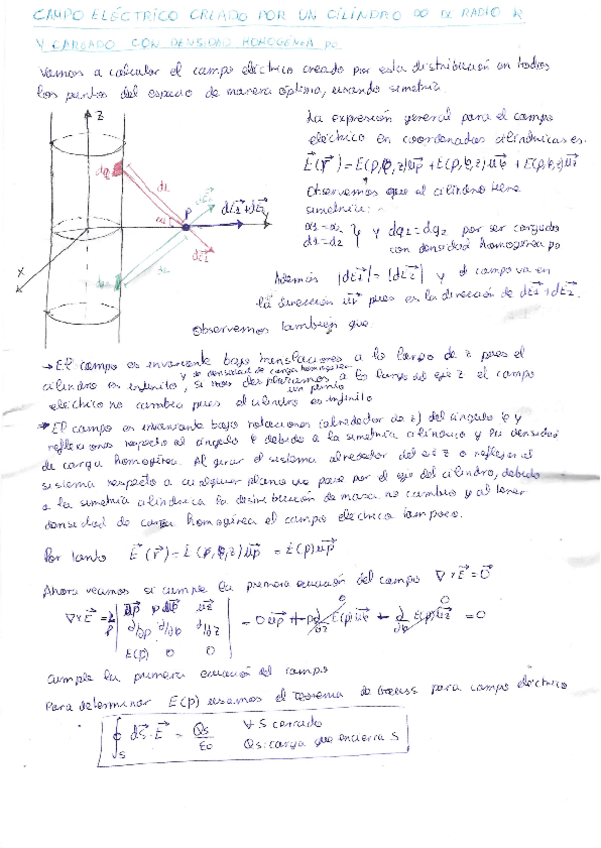 CAMPO ELÉCTRICO CREADO POR UN CILINDRO ∞ DE RADIO R
Y CARGADO CON DENSIDAD HOMOGÉNEA ρo
Vamos a calcular el campo eléctrico creado por esta distribución en todos
los puntos del espacio de manera óptima, usando simetría.
z
dq1
d1
α1
P
dE2
dE1+dE2
dE1
α2
d2
dq2
x
La expresión general para el campo
eléctrico en coordenadas cilíndricas es:
E(r) = E(ρ,φ,z)uρ + E(ρ,φ,z)uφ + E(ρ,φ,z)uz
Observemos que al cilindro tiene
simetría:
α1=α2
d1=d2 } y dq1=dq2 por ser cargado
con densidad homogénea ρo
Además |dE1| = |dE2| y el campo va en
la dirección ur pues es la dirección de dE1+dE2.
Observemos también que:
→ El campo es invariante bajo translaciones a lo largo de z pues el
cilindro es infinito y de densidad de carga homogénea, si nos desplazamos un punto a lo largo del eje z el campo
eléctrico no cambia pues el cilindro es infinito
→ El campo es invariante bajo rotaciones (alrededor de z) del ángulo φ y
reflexiones respecto al ángulo φ debido a la simetría cilíndrica y su densidad
de carga homogénea. Al girar el sistema alrededor del eje z o reflejar el
sistema respecto a cualquier plano que pase por el eje del cilindro, debido
a la simetría cilíndrica la distribución de masa no cambia y al tener
densidad de carga homogénea el campo eléctrico tampoco.
Por tanto E(r) = E(ρ,φ,z)uρ = E(ρ)uρ
Ahora veamos si cumple la primera ecuación del campo ∇×E = 0
∇×E = 1/ρ | uρ ρuφ uz |
| ∂/∂ρ ∂/∂φ ∂/∂z |
| E(ρ) 0 0 |
= 0uρ + ρ ∂/∂z E(ρ)uφ - ∂/∂φ E(ρ)uz = 0
0 0
Cumple la primera ecuación del campo
Para determinar E(ρ) usamos el Teorema de Gauss para campo eléctrico
∮s dS·E = Qs/ε0 ∀ S cerrado
Qs: carga que encierra S